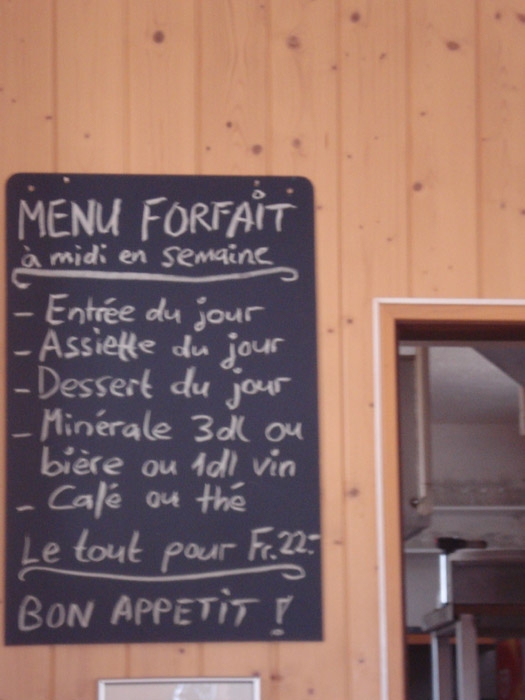 MENU FORFAIT
à midi en semaine
- Entrée du jour
- Assiette du jour
- Dessert du jour
- Minérale 3dl ou
bière ou 1dl vin
- Café ou thé
Le tout pour Fr. 22.-
BON APPETIT !